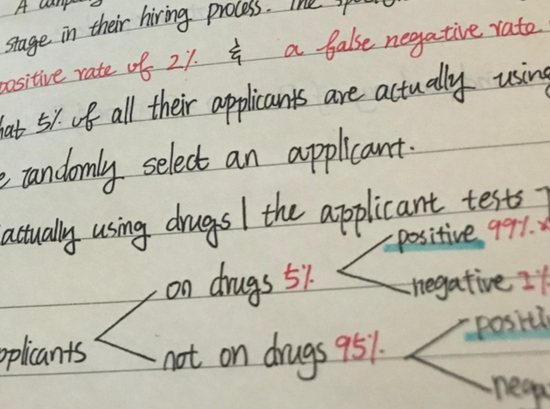 A
stage in their hiring process. The
positive rate of 2% & a false negative rate
that 5% of all their applicants are actually using
randomly select an applicant.
actually using drugs | the applicant tests
positive 99%
on drugs 5%
negative 1%
applicants
not on drugs 95%